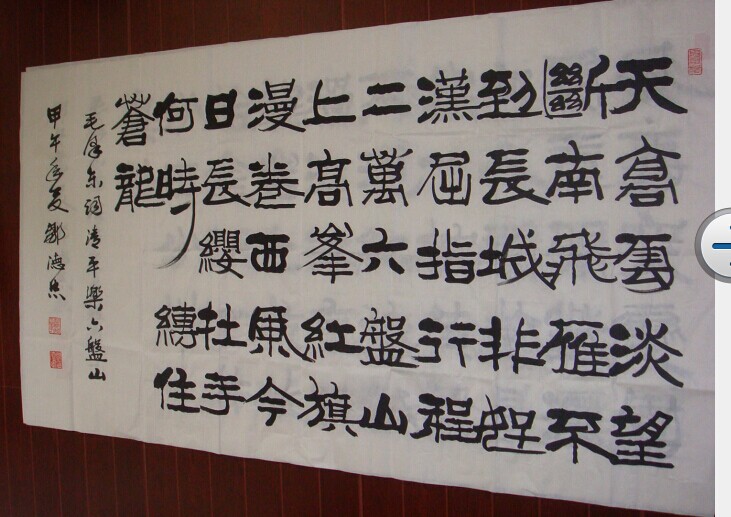 天高雲淡望
斷南飛雁不
到長城非好
漢屈指行程
二萬六盤山
上高峯紅旗
漫卷西風今
日長纓在手
何時縛住
蒼龍
毛澤东詞清平樂六盤山
甲午年夏